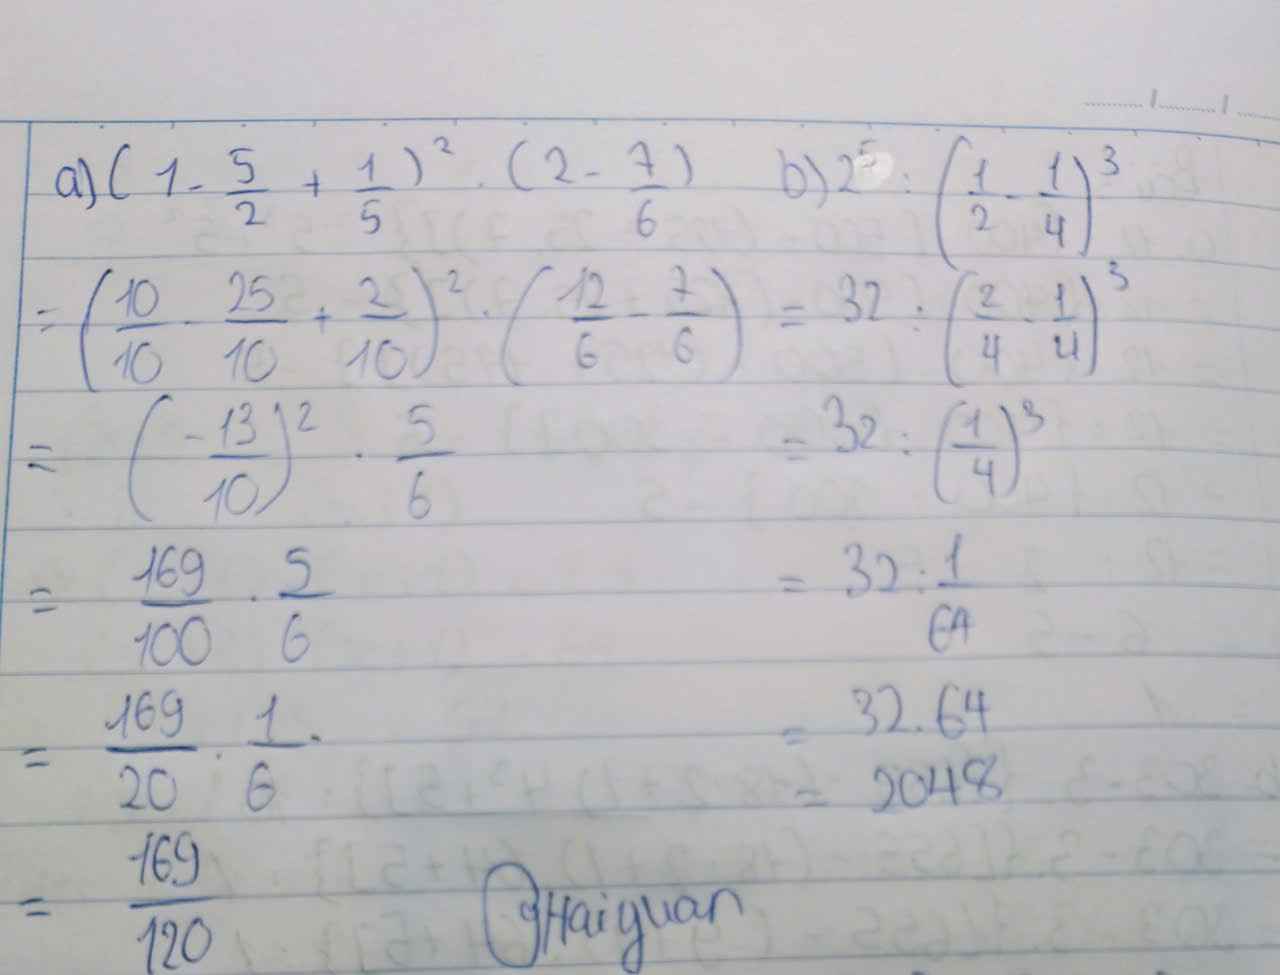 a) (1 - 5/2 + 1/5)² . (2 - 7/6)
= (10/10 - 25/10 + 2/10)² . (12/6 - 7/6)
= (-13/10)² . 5/6
= 169/100 . 5/6
= 169/20 . 1/6 .
= 169/120
b) 2⁵ : (1/2 - 1/4)³
= 32 : (2/4 - 1/4)³
= 32 : (1/4)³
= 32 : 1/64
= 32 . 64
= 2048